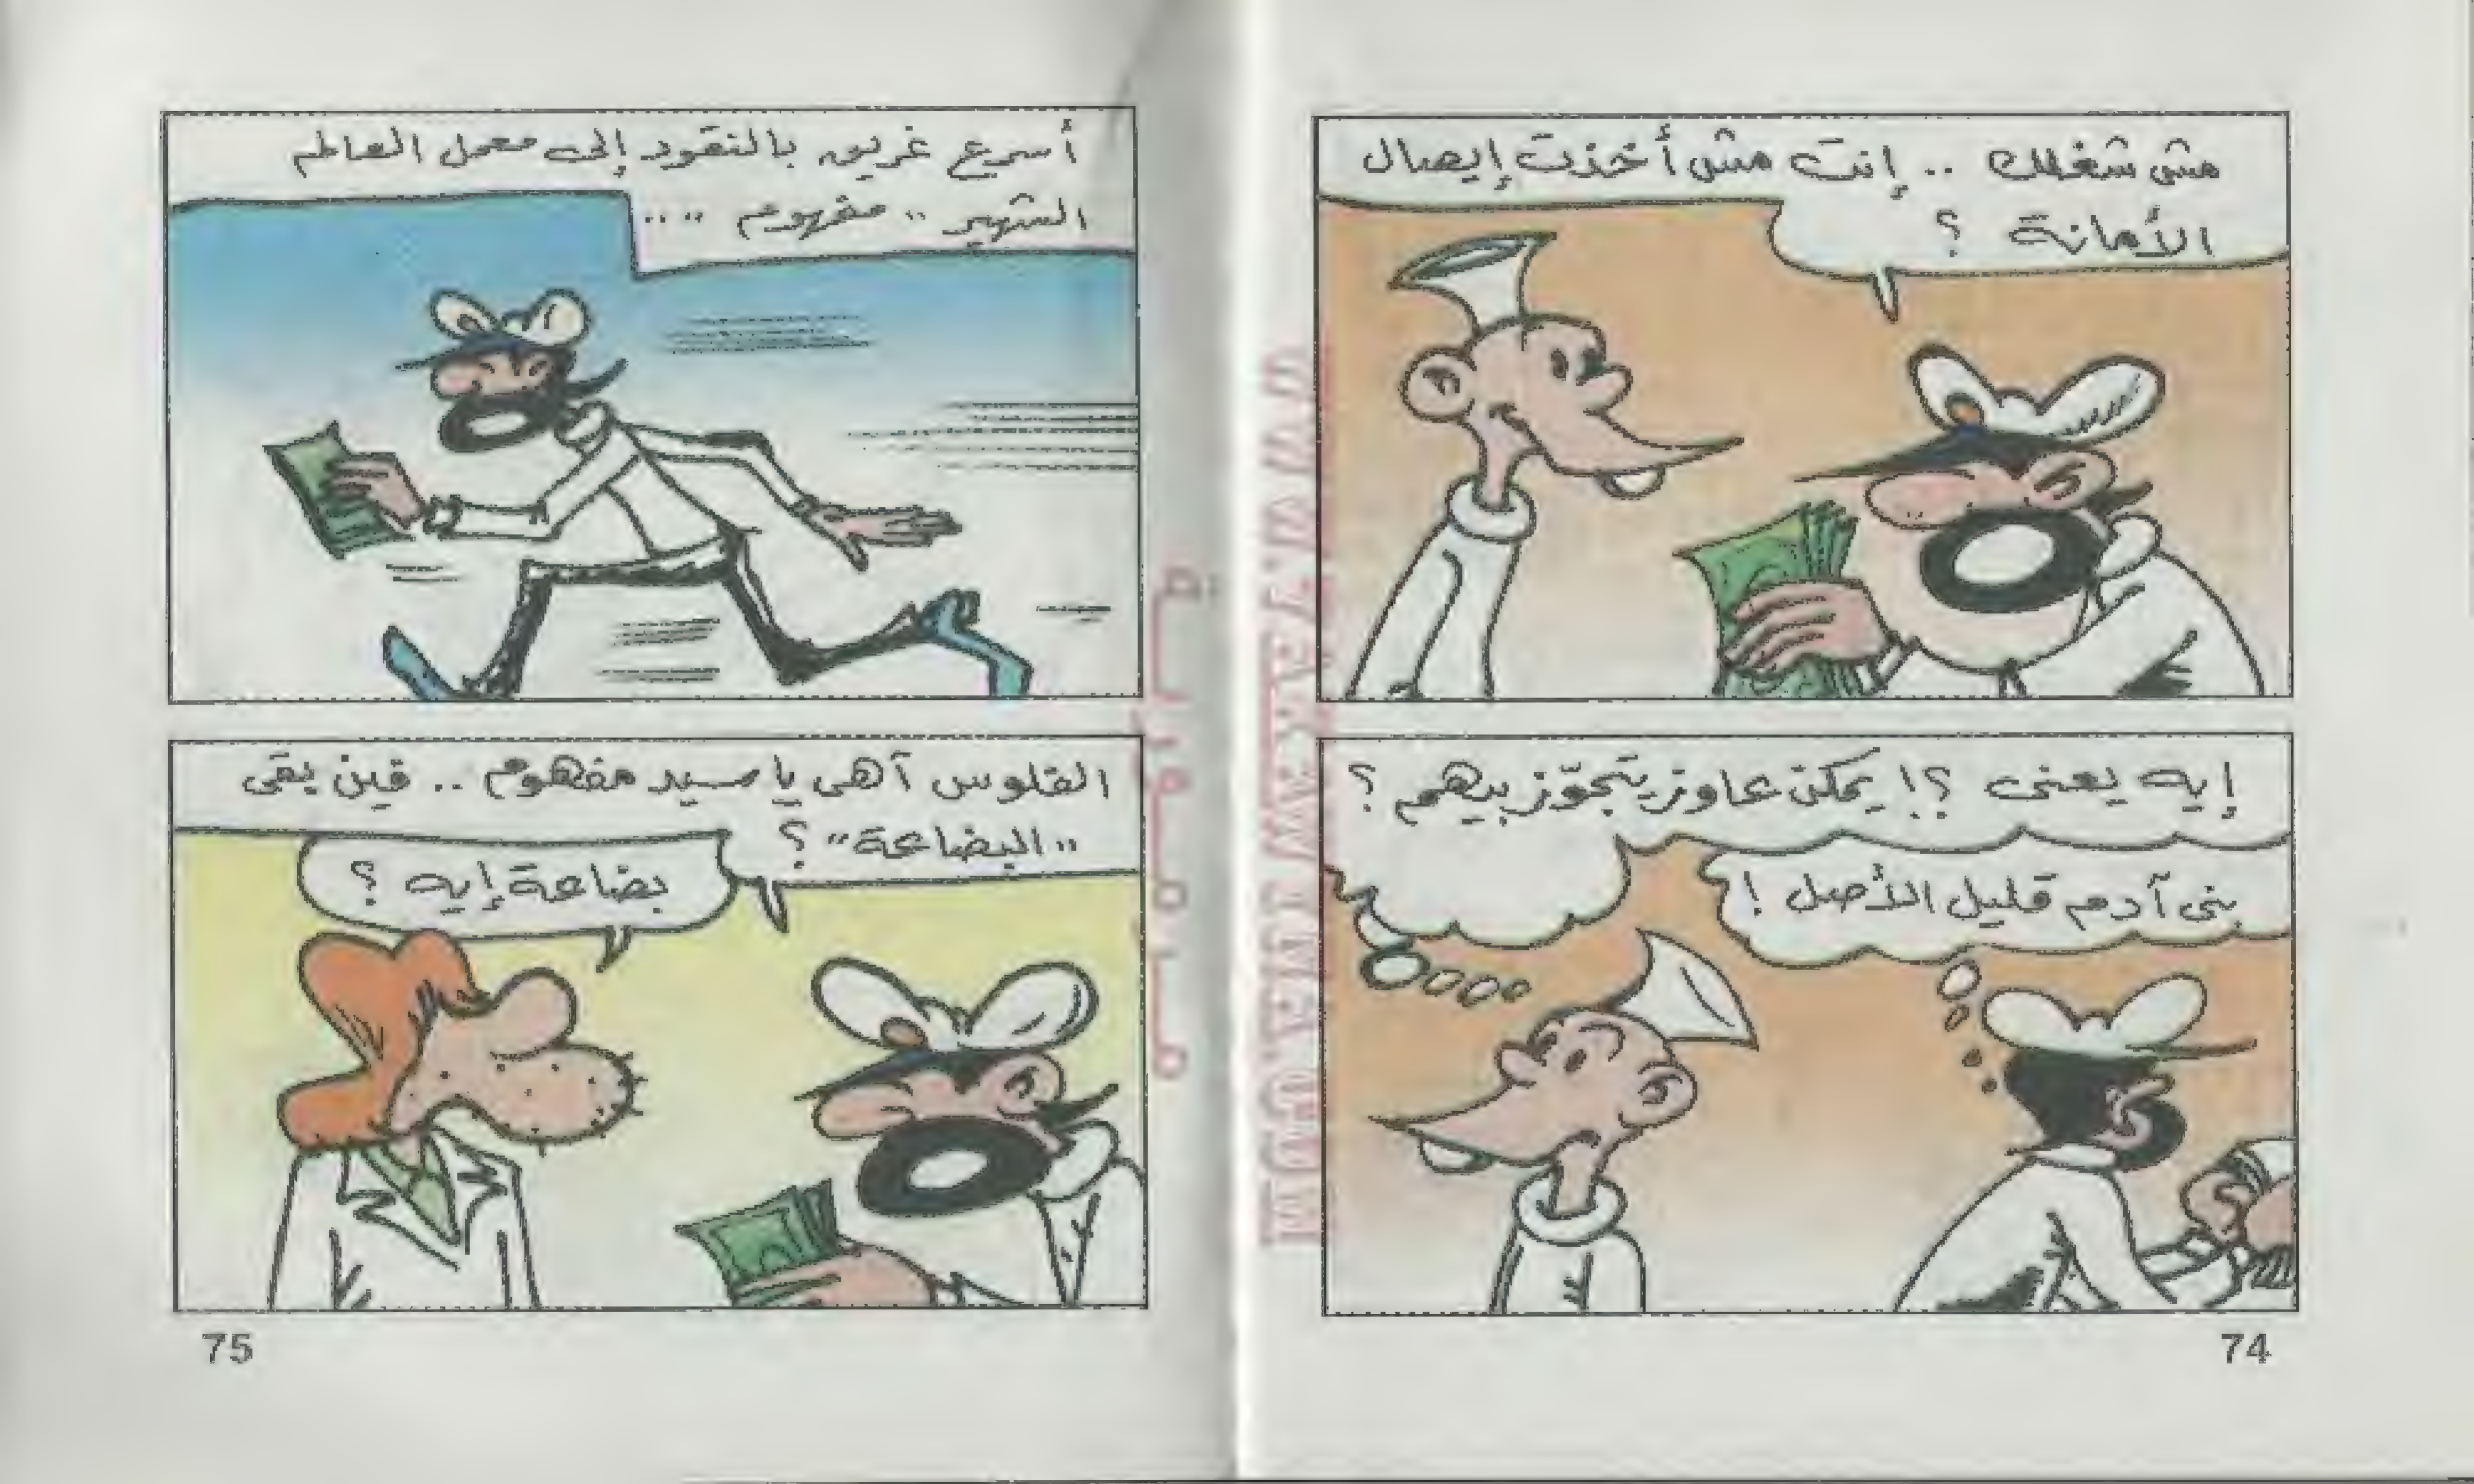 مش شغلك .. إنت مش أخذت إيصال
الأمانة ؟
إيه يعنى ؟! يمكن عاوز يتجوّز بيهم ؟
بنى آدم قليل الأصل !
74
أسرع غريب بالنقود إلى معمل العالم
الشهير .. مفهوم ....
الفلوس آهى يا سيد مفهوم .. فين بقى
"البضاعة" ؟
بضاعة إيه ؟
75